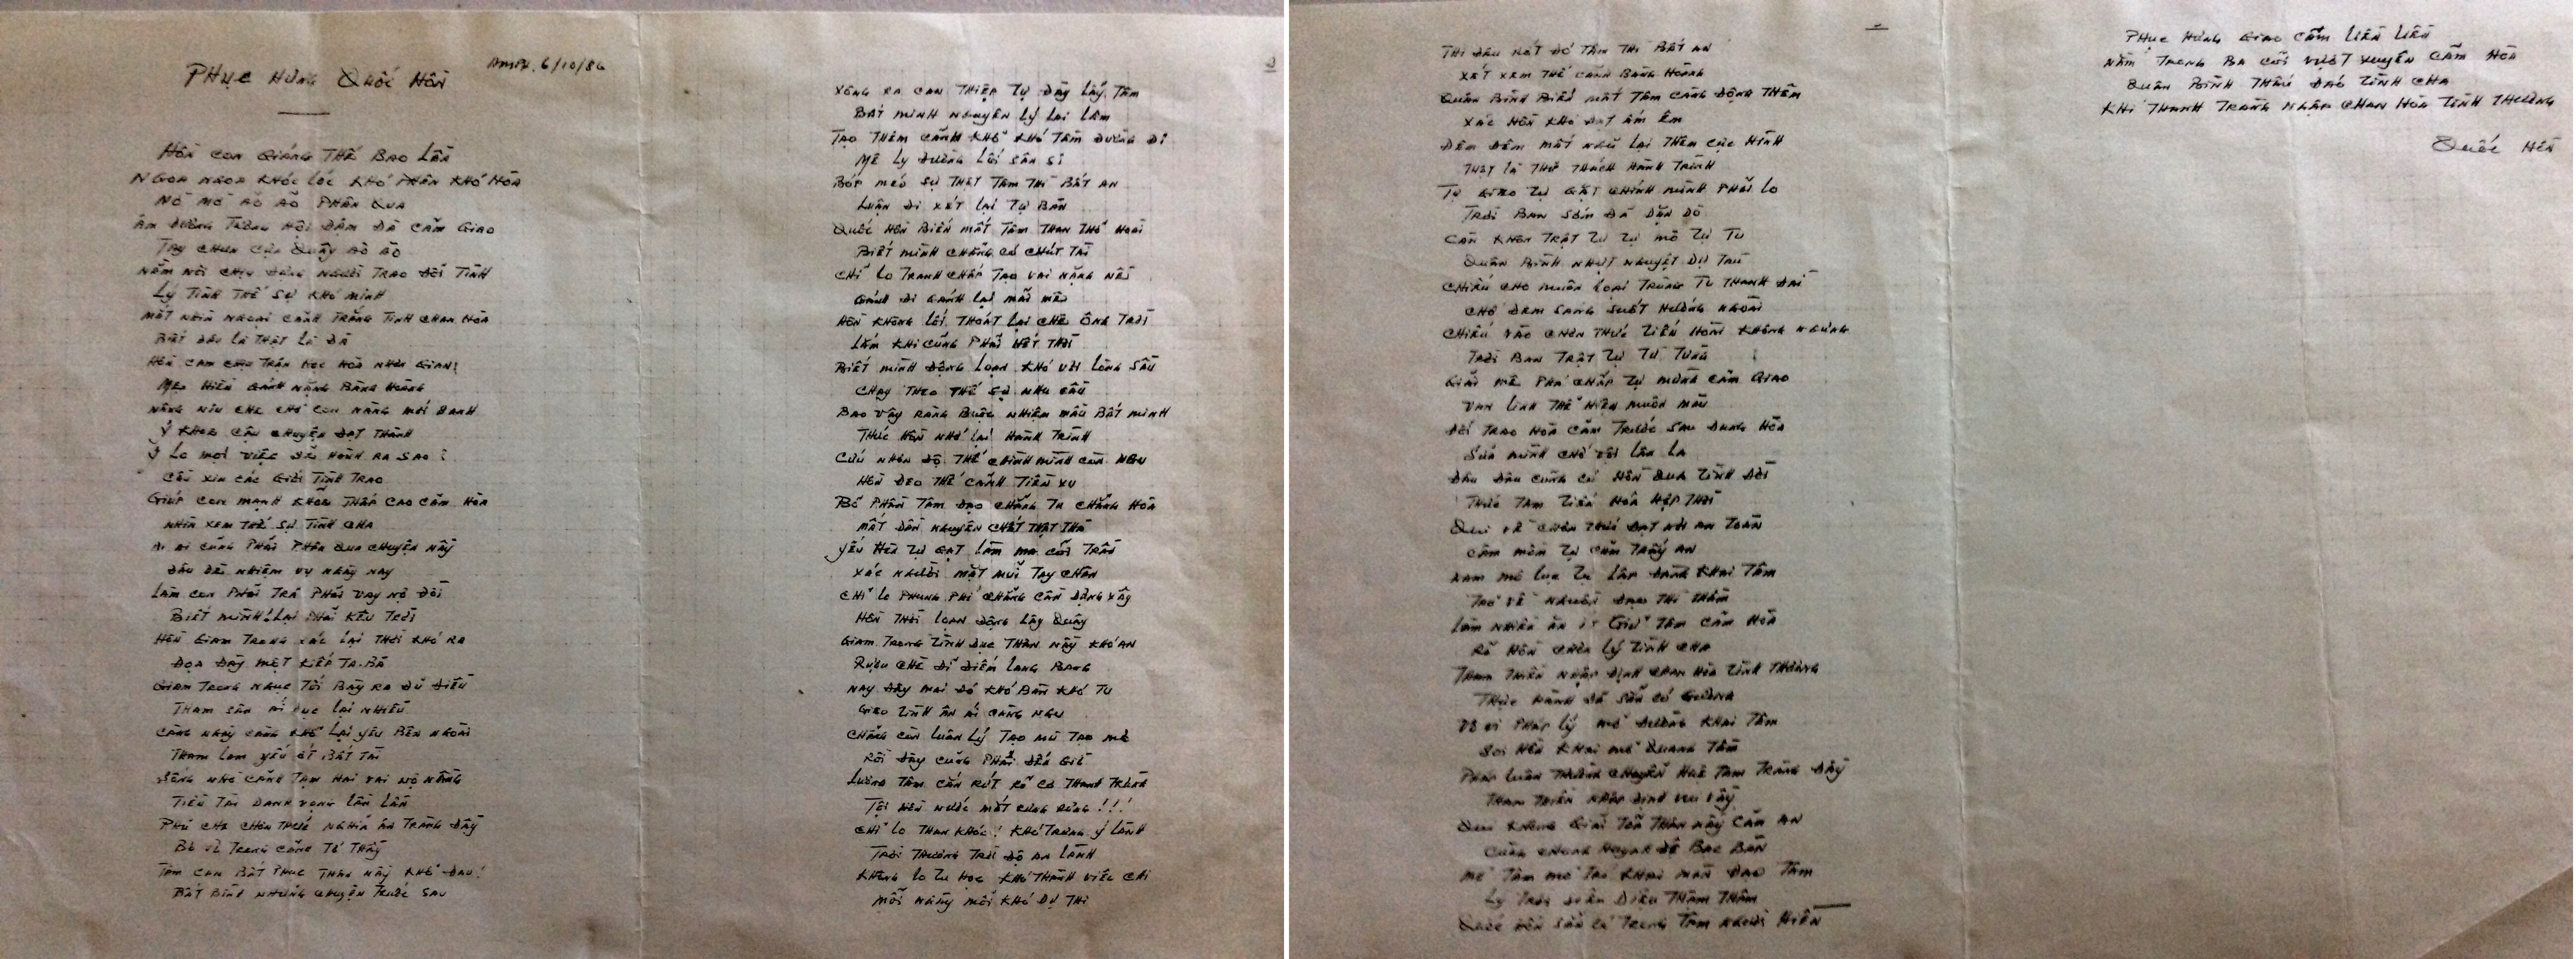 PHỤC HƯNG QUỐC HỒN
6/10/86
HỒN CON GIÁNG THẾ BAO LẦN
NGOA NGOA KHÓC LÓC KHÓ PHÂN KHÓ HÒA
ÂM DƯƠNG TRÙNG HỘI ĐẬM ĐÀ CẢM GIAO
TAY CHƯN CỰA QUẬY
NẰM NÔI CHỊU ĐỰNG NGƯỜI TRAO ĐỔI TÌNH
LÝ TÌNH THẾ SỰ KHÓ MINH
MẮT NHÌN NGOẠI CẢNH TRĂNG TINH CHAN HÒA
BIẾT ĐÂU LÀ THẬT LÀ ĐÀ
HỒN CAM CHỊU TRẦN HỌC HÒA NHƠN GIAN
MẸ HIỀN GÁNH NẶNG BÀNG HOÀNG
NÂNG NIU CHE CHỞ CON NÀNG MỚI SANH
Ỷ KHOE CÂU CHUYỆN ĐẠT THÀNH
Ỷ LO MỌI VIỆC SẼ HOÀNH RA SAO
CẦU XIN CÁC GIỚI TÌNH TRAO
GIÚP CON MẠNH KHỎE THẤP CAO CẢM HÒA
NHÌN XEM THẾ SỰ TÌNH CHA
AI AI CŨNG PHẢI PHÂN QUA CHUYỆN NÀY
ĐẦU ĐUÔI NHIỆM VỤ NGÀY NAY
LÀM CON PHẢI TRẢ PHẢI VAY NỢ ĐỜI
BIẾT MÌNH LẠI PHẢI KÊU TRỜI
HỒN GIAM TRONG XÁC LẠI THỜI KHÓ RA
ĐỌA ĐÀY MỘT KIẾP TA BÀ
GIAM TRONG NGỤC TỐI BÀY RA ĐỦ ĐIỀU
THAM SÂN ÁI DỤC LẠI NHIỀU
CÀNG NGÀY CÀNG KHỔ LẠI YÊU BÊN NGOÀI
THAM LAM YẾU ỚT BẤT TÀI
SỐNG NHỜ CẢNH TẠM HAI VAI NỢ NẦNG
TIỀN TÀI DANH VỌNG LẦN LẦN
PHỦ CHE CHƠN THỨC NGHĨA ÂN TRÀNG ĐẦY
TÂM CAN BẤT PHỤC THÂN NÀY KHỔ ĐAU
BẤT BÌNH NHỮNG CHUYỆN TRƯỚC SAU
XÔNG RA CAN THIỆP TỰ ĐẦY LẤY TÂM
BẤT MINH NGUYÊN LÝ LẠI LẦM
TẠO THÊM CẢNH KHỔ KHÓ TẦM ĐƯỜNG ĐI
MÊ LY ĐƯỜNG LỐI SÂN SI
BÓP MÉO SỰ THẬT TÂM THÌ BẤT AN
LUẬN ĐI XÉT LẠI TỰ BÀN
QUỐC HỒN BIẾN MẤT TÂM THAN THỞ HOÀI
BIẾT MÌNH CHẲNG CÓ CHÚT TÀI
CHỈ LO TRANH CHẤP TẠO VAI NẶNG NỀ
GÁNH ĐI GÁNH LẠI MÃI MÊ
HỒN KHÔNG LỐI THOÁT LẠI CHÊ ÔNG TRỜI
LẮM KHI CŨNG PHẢI HẾT THỜI
BIẾT MÌNH ĐỘNG LOẠN KHÓ VƠI LÒNG SẦU
CHẠY THEO THẾ SỰ NHU CẦU
BAO VÂY RÀNG BUỘC NHIỆM MẦU BẤT MINH
THỨC HỒN NHỚ LẠI HÀNH TRÌNH
CỨU NHƠN ĐỘ THẾ CHÍNH MÌNH CÒN NGU
HỒN ĐEO THẾ CẢNH TIỀN XU
BỎ PHẦN TÂM ĐẠO CHẲNG TU CHẲNG HÒA
MẤT DẦN NGUYÊN CHẤT THẬT THÀ
YẾU HÈN TỰ GẠT LÀM MA CÕI TRẦN
XÁC NGƯỜI MẶT MŨI TAY CHÂN
CHỈ LO PHUNG PHÍ CHẲNG CẦN DỰNG XÂY
HỒN THỜI LOẠN ĐỘNG LẬY QUẬY
GIAM TRONG TÌNH DỤC THÂN NÀY KHÓ AN
RƯỢU CHÈ ĐĨ ĐIẾM LANG BANG
NAY ĐÂY MAI ĐÓ KHÓ BÀN KHÓ TU
GIEO TÌNH ÂN ÁI CÀNG NGU
CHẲNG CÒN LUÂN LÝ TẠO MÙ TẠO MÊ
RỒI ĐÂY CŨNG PHẢI
LƯƠNG TÂM CẮN RỨT
TỘI HỒN NƯỚC MẮT RƯNG RƯNG !!!
CHỈ LO THAN KHÓC! KHÓ TRÙNG Ý LÀNH
TRỜI THƯƠNG TRỜI ĐỘ AN LÀNH
KHÔNG LO TU HỌC KHÓ THÀNH VIỆC CHI
MỖI NGÀY MỖI KHÓ DỰ THI
THI ĐÂU RỚT ĐÓ TÂM THÌ BẤT AN
XÉT XEM THẾ CẢNH BÀNG HOÀNG
QUÂN BÌNH BIẾN MẤT TÂM CÀNG ĐỘNG THÊM
XÁC HỒN KHÓ ĐẠT ẤM ÊM
ĐÊM ĐÊM MẤT NGỦ LẠI THÊM CỰC HÌNH
THẬT LÀ THỬ THÁCH HÀNH TRÌNH
TỰ GIEO TỰ GẶT CHÍNH MÌNH PHẢI LO
TRỜI BAN SỚM ĐÃ DẶN DÒ
CÀN KHÔN TRẬT TỰ TỰ MÒ TỰ TU
QUÂN BÌNH NHỰT NGUYỆT DỰ TRÙ
CHIẾU CHO MUÔN LOẠI TRÙNG TU THANH ĐÀI
CHỞ ĐEM SÁNG SUỐT HƯỚNG NGOÀI
CHIẾU VÀO CHƠN THỨC TIẾN HOÀI KHÔNG NGỪNG
TRỜI BAN TRẬT TỰ TƯ TƯNG
GIẢI MÊ PHÁ CHẤP TỰ MỪNG CẢM GIAO
VẠN LINH THỂ HIỆN MUÔN MÀU
ĐỔI TRAO HÒA CẢM TRƯỚC SAU DUNG HÒA
SỬA MÌNH CHỚ VỘI LÂN LA
ĐÂU ĐÂU CŨNG CÓ HỒN QUA TÌNH ĐỜI
THỨC TÂM TIẾN HÓA HỢP THỜI
QUI VỀ CHƠN THỨC ĐẠT NƠI AN TOÀN
CẢM MÌNH TỰ CẢM THẤY AN
NAM MÔ LỤC TỰ LẬP ĐÀNG KHAI TÂM
TRỞ VỀ NGUỒN ĐẠO THÌ THẦM
RÕ HỒN CHƠN LÝ TÌNH CHA
THAM THIỀN NHẬP ĐỊNH CHAN HÒA TÌNH THƯƠNG
THỰC HÀNH ĐÃ SẴN CÓ GƯƠNG
VÔ VI PHÁP LÝ MỞ ĐƯỜNG KHAI TÂM
SOI HỒN KHAI MỞ QUANG TÂM
PHÁP LUÂN THƯỜNG CHUYỂN HUỆ TÂM TRÀNG ĐẦY
THAM THIỀN NHẬP ĐỊNH VUI VẦY
QUI KHÔNG GIẢI TỎA THÂN NÀY CẢM AN
CÙNG CHUNG HUYNH ĐỆ BẠC BÀN
MỞ TÂM MỞ TRÍ KHAI MÀN ĐẠO TÂM
LÝ TRỜI SIÊU DIỆU THÂM THÂM
QUỐC HỒN SẴN CÓ TRONG TÂM NGƯỜI HIỀN
PHỤC HƯNG GIAO CẢM LIÊN LIÊN
NẰM TRONG BA CÕI VƯỢT XUYÊN CẢM HÒA
QUÂN BÌNH THẤU ĐÁO TÌNH CHA
KHÍ THANH TRÀNG NGẬP CHAN HÒA TÌNH THƯƠNG
QUỐC HỒN